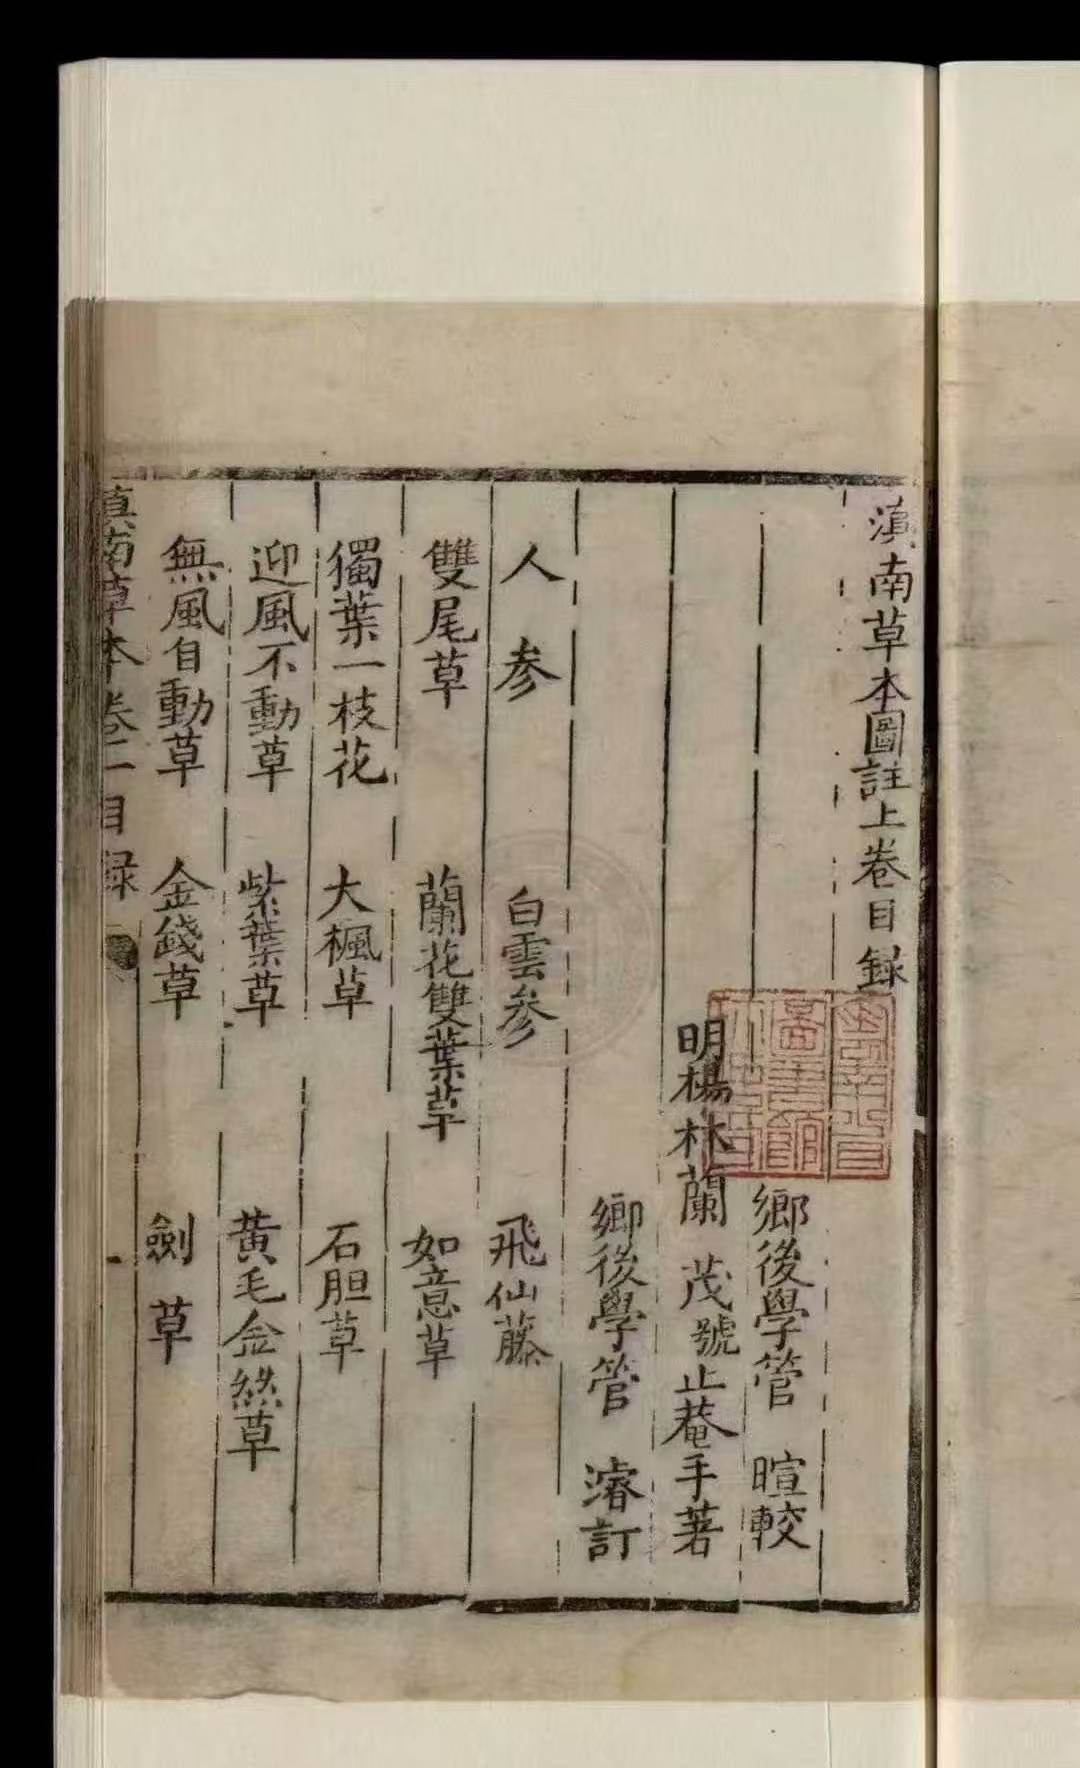 滇南草本圖註上卷目錄
鄉後學管 暄較
明楊林蘭 茂號止菴手著
鄉後學管 濬訂
人參 白雲參 飛仙藤
雙尾草 蘭花雙葉草 如意草
獨葉一枝花 大楓草 石胆草
迎風不動草 紫葉草 黃毛金絲草
無風自動草 金錢草 劍草
滇南草本卷二目録 一